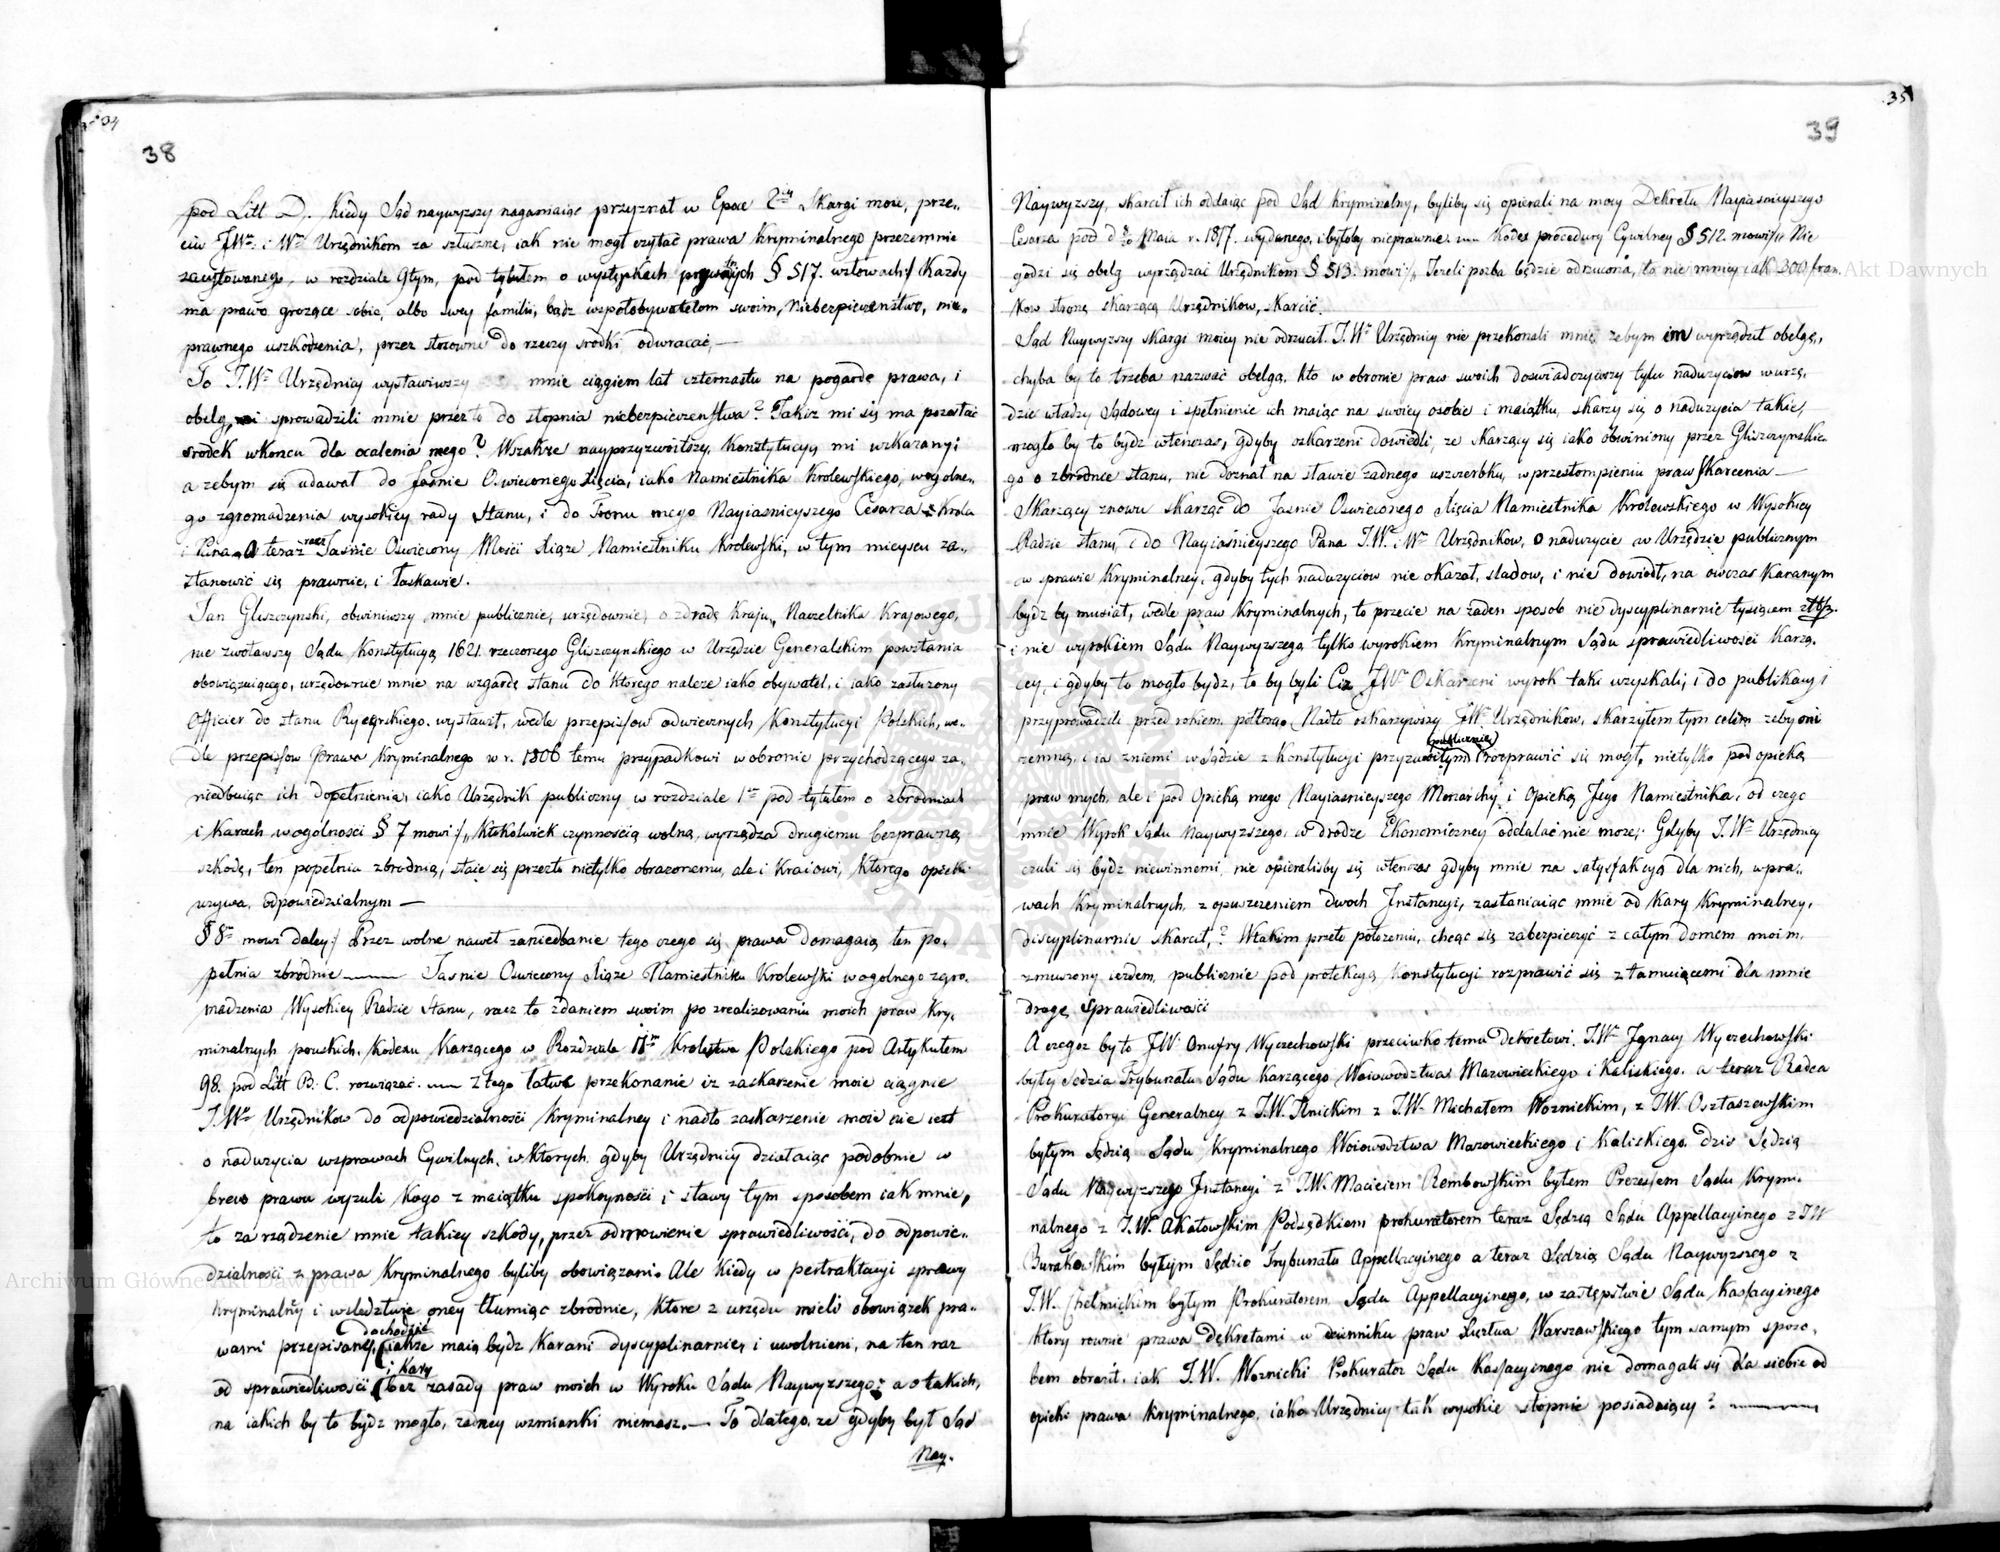 38
pod Litt D. Kiedy Sąd naywyższy naganiaiąc przyznał w Epoce 2iey Skargi moie, prze„
ciw JWnym i Wnym Urzędnikom za słuszne, iak nie mogł czytać prawa kryminalnego przezemnie
zacytowanego, w rozdziale 9tym, pod tytułem o występkach prywatnych § 517. w słowach:/ Każdy
ma prawo grożące sobie, albo swey familii, bądz współobywatelom swoim, Niebezpieczeństwo, nie„
prawnego uszkodzenia, przez stosowne do rzeczy srodki odwracać, —
To J.Wni Urzędnicy wystawiwszy mnie ciągiem lat czternastu na pogardę prawa, i
obelg, sprowadzili mnie przez to do stopnia niebezpieczenstwa? Jakiz mi się ma pozostać
srodek wkoncu dla ocalenia mego? Wszakze nayprzyzwoitszy, Konstytucyą mi wskazany:
a zebym się udawał do Jasnie Oswieconego Xięcia, iako Namiestnika Krolewskiego, w ogolne„
go zgromadzenia wysokiey rady Stanu, i do Tronu mego Nayiasnieyszego Cesarza i Krola
i Pana. A teraz racz Jasnie Oswiecony Mości Xiąże Namiestniku Krolewski, w tym mieyscu za„
stanowić się prawnie, i łaskawie.
Jan Gliszczynski, obwiniwszy mnie publicznie, urzędownie, o zdradę Kraju, Naczelnika Krajowego,
nie zwoławszy Sądu Konstytucyą 1621. rzeczonego Gliszczynskiego w Urzędzie Generalskim powstania
obowiązuiącego, urzędownie mnie na wzgardę stanu do ktorego należe iako obywatel, i iako zasłuzony
Officier do stanu Rycerskiego. wystawił, wedle przepisow odwiecznych Konstytucyi Polskich, we„
dle przepisow Prawa Kryminalnego w r. 1806 temu przypadkowi w obronie przychodzącego za„
niedbuiąc ich dopełnienia, iako Urzędnik publiczny, w rozdziale 1m pod tytułem o zbrodniach
i karach w ogolnosci § 7 mowi:/, Ktokolwiek czynnością wolną, wyrządza drugiemu bezprawną
szkodę, ten popełnia zbrodnią, staie się przezto nietylko obrazonemu, ale i Kraiowi, ktorego opieki
uzywa, odpowiedzialnym —
§ 8m mowi daley:/ Przez wolne nawet zaniedbanie tego czego się prawa domagaią ten po„
pełnia zbrodnie — Jasnie Oswiecony Xiąze Namiestniku Krolewski w ogolnego zgro„
madzenia Wysokiey Radzie Stanu, racz to zdaniem swoim po zrealizowaniu moich praw Kry„
minalnych pruskich, Kodexu Karzącego w Rozdziale II Krolestwa Polskiego pod Artykułem
98. pod Litt B. C. rozwiązać. — Z tego łatwe przekonanie iz zaskarzenie moie ciągnie
J.Wnych Urzędnikow do odpowiedzialnosci Kryminalney i nadto zaskarzenie moie nie iest
o naduzycia wsprawach Cywilnych, w ktorych gdyby Urzędnicy działaiąc podobnie w
brew prawu wyzuli Kogo z maiątku spokoyności i sławy tym sposobem iak mnie,
to za rządzenie mnie takiey szkody, przez odmowienie sprawiedliwości, do odpowie„
dzialności z prawa Kryminalnego byliby obowiązani. Ale kiedy w pertraktacyi sprawy
Kryminalney i wsledztwie oney tłumiąc zbrodnie, ktore z urzędu mieli obowiązek pra„
dochodzić
wami przepisaney, (iakze maią bydz karani dyscyplinarnie, i uwolnieni, na ten raz
i Kary
od sprawiedliwości (bez zasady praw moich w Wyroku Sądu Naywyzszego; a o takich,
na iakich by to bydz mogło, zadney wzmianki niemasz. — To dlatego, ze gdyby był Sąd
Nay„
35
39
Naywyzszy, skarcił ich oddaiąc pod Sąd Kryminalny, byliby się opierali na mocy Dekretu Nayiasnieyszego
Cesarza pod d. Maia r. 1817. wydanego, i byłoby nieprawnie. — Kodex procedury Cywilney § 512. mowi:/, Nie
godzi się obelg wyrządzać Urzędnikom § 513. mowi:/, Jezeli pozba będzie odrzucona, to nie mniey iak 300 fran„
kow stronę skarzącą Urzędnikow, skarcić.
Sąd Naywyzszy skargi moiey nie odrzucił. J.Wni Urzędnicy nie przekonali mnie, zebym im wyrządził obelgę,
chyba by to trzeba nazwać obelgą, kto w obronie praw swoich doswiadczywszy tylu naduzyciow w urzę„
dzie władzy Sądowey i spełnienie ich maiąc na swoiey osobie i maiątku, skarzy się o naduzycia takie,
mogło by to bydz wtenczas, gdyby oskarzeni dowiedli, ze skarzący się iako obwiniony przez Gliszczynskie„
go o zbrodnce stanu, nie doznał na sławie zadnego uszczerbku, w przestompieniu praw skarcenia —
Skarzący znowu skarząc do Jasnie Oswieconego Xięcia Namiestnika Krolewskiego w Wysokiey
Radzie stanu, i do Nayiasnieyszego Pana J.Wnych i Wnych Urzędnikow, o naduzycie w Urzędzie publicznym
w sprawie Kryminalney, gdyby tych naduzyciow nie okazał, sladow, i nie dowiodł, na owczas karanym
bydz by musiał, wedle praw Kryminalnych, to przecie na zaden sposob nie dyscyplinarnie tysiącem złtp.
i nie wyrokiem Sądu Naywyzszego tylko wyrokiem kryminalnym Sądu sprawiedliwości karzą„
cey, i gdyby to mogło bydz, to by byli Ciz JWni Oskarzeni wyrok taki uzyskali, i do publikacyi
przyprowadzili przed rokiem połtoro. Nadto oskarzywszy JWnych Urzędnikow, skarzyłem tym celem zeby oni
publicznie
zemną, i ia zniemi w Sądzie z Konstytucyi przyzwoitym (rozprawić się mogł, nietylko pod opieką
praw mych, ale i pod Opieką mego Nayiasnieyszego Monarchy i Opieką Jego Namiestnika, od czego
mnie Wyrok Sądu naywyzszego, w drodze Ekonomiczney oddalać nie moze; Gdyby J.Wni Urzędnicy
czuli się bydz niewinnemi, nie opieraliby się wtenczas gdyby mnie na satysfakcyą dla nich, w pra„
wach Kryminalnych, z opuszczeniem dwoch Instancyi, zasłaniaiąc mnie od kary kryminalney,
discyplinarnie skarcił,? Wtakim przeto położeniu, chcąc się zabezpieczyć z całym domem moim,
zmuszony iestem, publicznie pod protekcyą Konstytucyi rozprawić się z tamuiącemi dla mnie
drogę Sprawiedliwości
A czegoz by to JW Onufry Wyczechowski przeciwko temu Dekretowi, J.Wny Ignacy Wyczechowski
były Sędzia Trybunału Sądu Karzącego Woiewodztwa Mazowieckiego i Kaliskiego. a teraz Radca
Prokuratoryi Generalney z J.W. Ilnickim z J.W. Michałem Woznickim, z JW. Osztaszewskim
byłym Sędzią Sądu Kryminalnego Woiewodztwa Mazowieckiego i Kaliskiego, dzis Sędzią
Sądu Naywyzszego Instancyi z J.W. Macieiem Rembowskim byłem Prezesem Sądu Krymi„
nalnego z J.W. Akałowskim Podsędkiem prokuratorem teraz Sędzią Sądu Appellacyinego z J.W
Burakowskim byłym Sędzio Trybunału Appellacyinego a teraz Sędzią Sądu Naywyzszego z
J.W. Chełmickim byłym Prokuratorem Sądu Appellacyinego, w zastępstwie Sądu Kassacyinego
ktory rownie prawa dekretami w dzienniku praw Xięstwa Warszawskiego tym samym sposo„
bem obraził, iak J.W. Woznicki Prokurator Sądu Kassacyinego nie domagali się dla siebie od
opieki prawa Kryminalnego, iako Urzędnicy tak wysokie stopnie posiadaiący? —